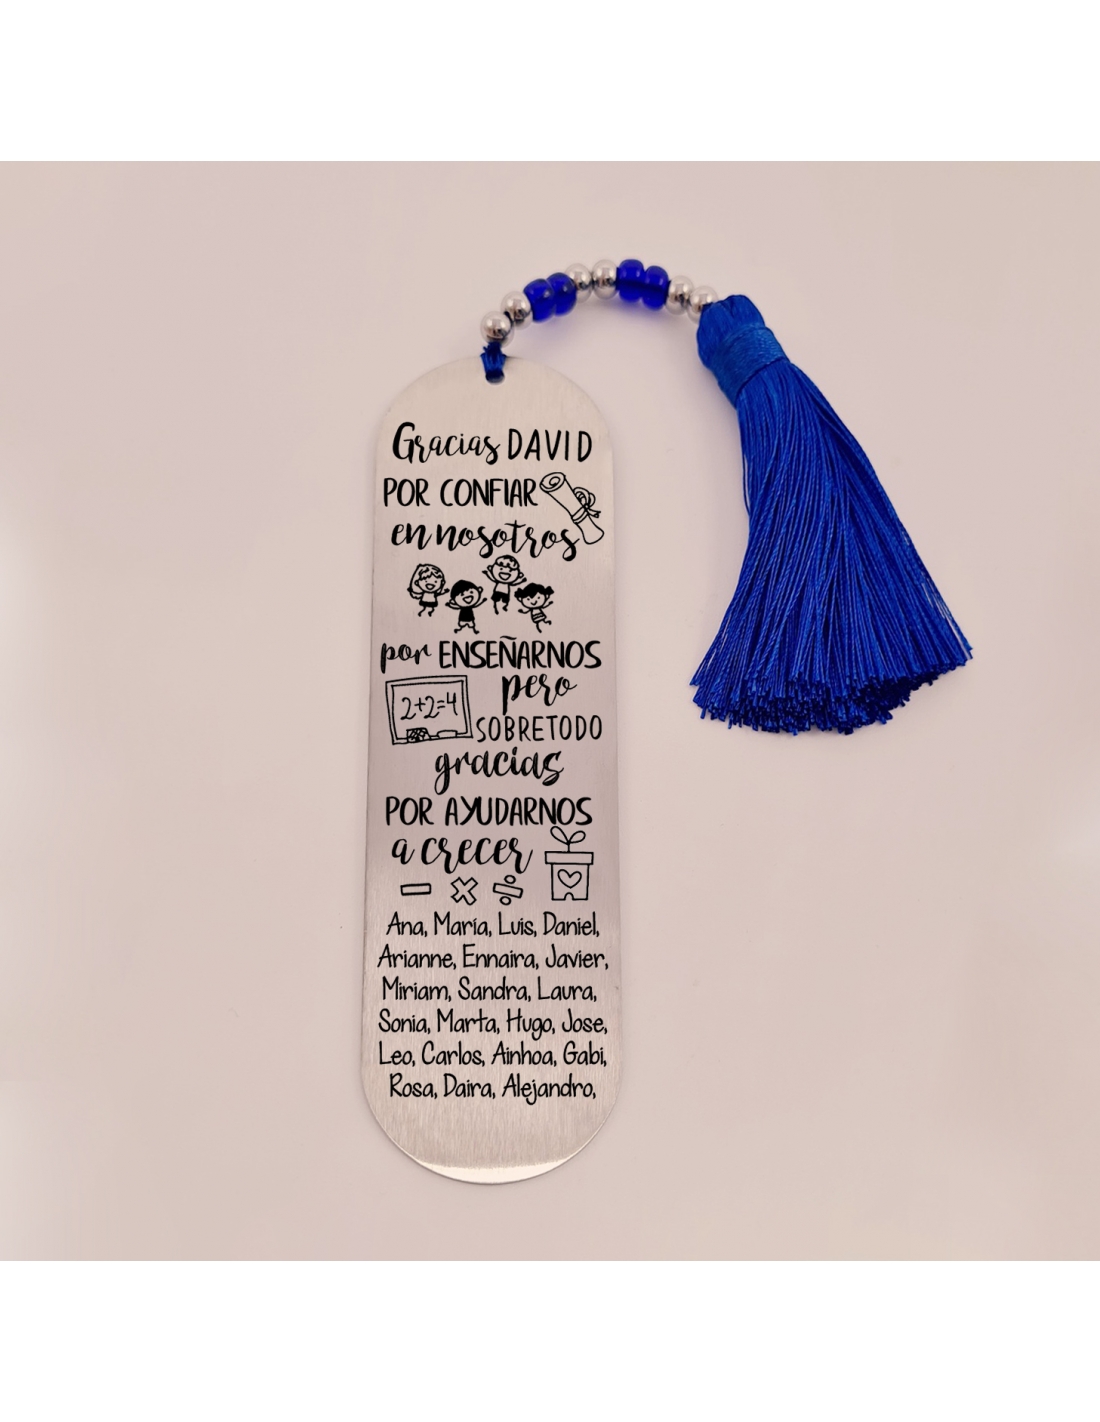 Gracias DAVID
POR CONFIAR
en nosotros
por ENSEÑARNOS
pero
2+2=4
SOBRETODO
gracias
POR AYUDARNOS
a crecer
Ana, María, Luis, Daniel,
Arianne, Ennaira, Javier,
Miriam, Sandra, Laura,
Sonia, Marta, Hugo, Jose,
Leo, Carlos, Ainhoa, Gabi,
Rosa, Daira, Alejandro,